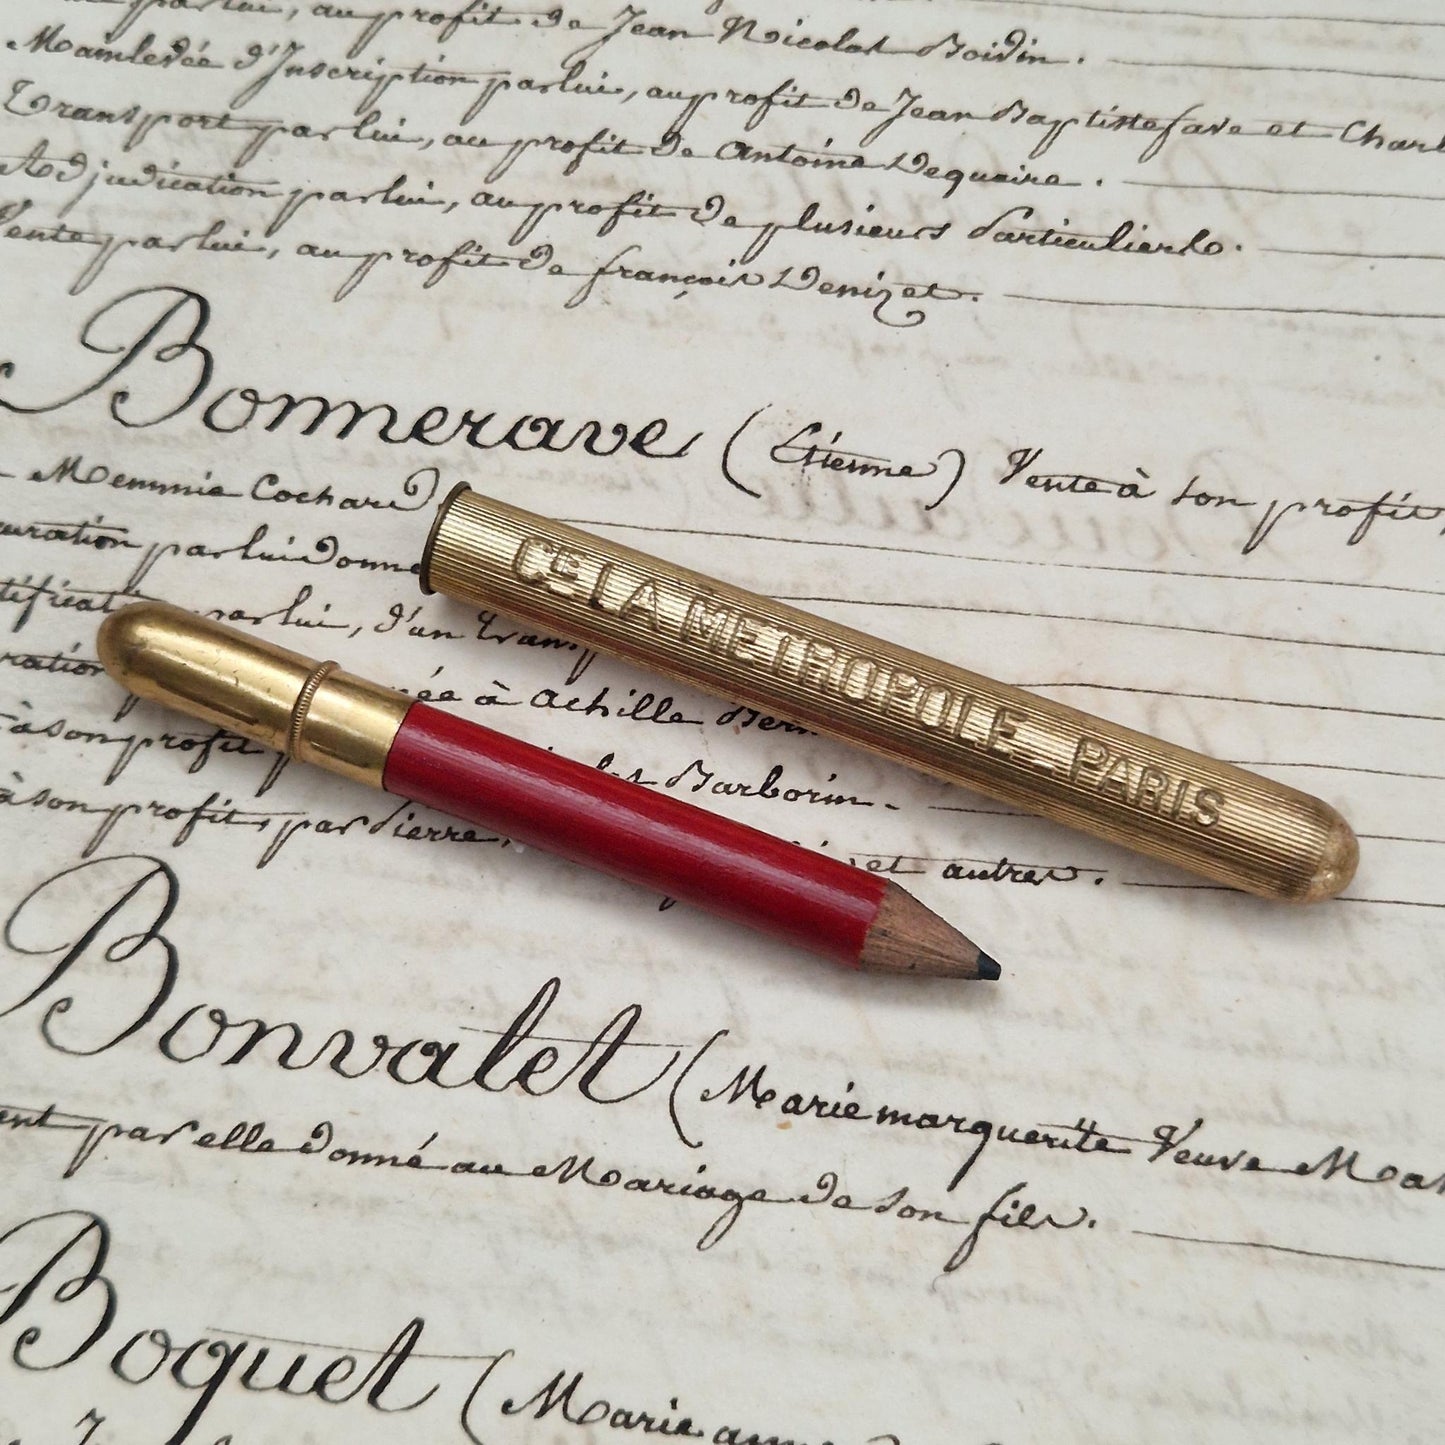 par lui, au profit de Jean Nicolas Boidin.
Mainlevée d'Inscription par lui, au profit de Jean Baptiste fave et Charl
Transport par lui, au profit de Antoine Dequaire.
Adjudication par lui, au profit de plusieurs Particuliers.
Vente par lui, au profit de françois Denizet.
Bonnerave (Etienne) Vente à son profit,
Memmie Cochard
uration par lui donné
tification par lui, d'un Tran
ration née à Achille Bern
à son profit Barborin.
à son profit, par Pierre, et autres.
Bonvalet (Marie marguerite Veuve Ma
ent par elle donné au Mariage de son fils.
Boquet (Marie ann
CIE LA METROPOLE PARIS